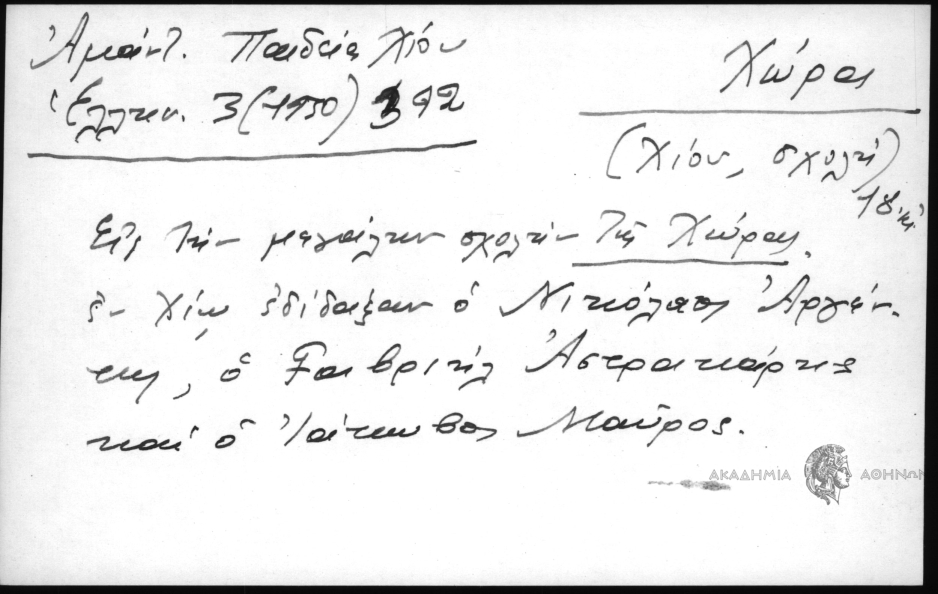 Ἀμάντ. Παιδεία Χίου
Ἑλλην. 3 (1930) 392
Χώρας
(Χίου, σχολή)
18. αἰ.
Εἰς τὴν μεγάλην σχολὴν τῆς Χώρας
ἐν Χίῳ ἐδίδαξαν ὁ Νικόλαος Ἀργέν-
της, ὁ Γαβριὴλ Ἀστρακάρης
καὶ ὁ Ἰάκωβος Μαῦρος.
ΑΚΑΔΗΜΙΑ ΑΘΗΝΩΝ